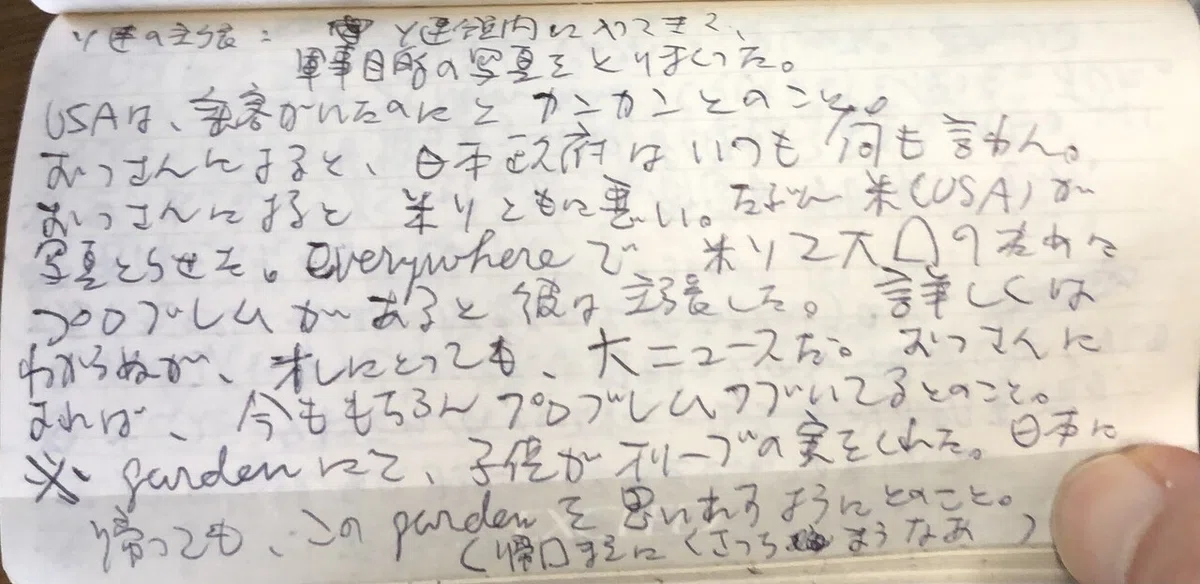 ソ連の主張: ソ連領内に入ってきて、
軍事目的の写真をとりまくった。
USAは、乗客がいたのにと カンカンとのこと。
おっさんによると、日本政府はいつも何も言わん。
おっさんによると 米ソともに悪い。たぶん 米(USA)が
写真とらせた。Everywhereで 米ソ2大口のために
プロブレムがあると彼は主張した。詳しくは
わからぬが、オレにとっても、大ニュースだ。おっさんに
よれば、今ももちろんプロブレムつづいてるとのこと。
※ gardenにて、子供がオリーブの実をくれた。日本に
帰っても、このgardenを思いだすようにとのこと。
(帰口までに くさっちまうなあ)